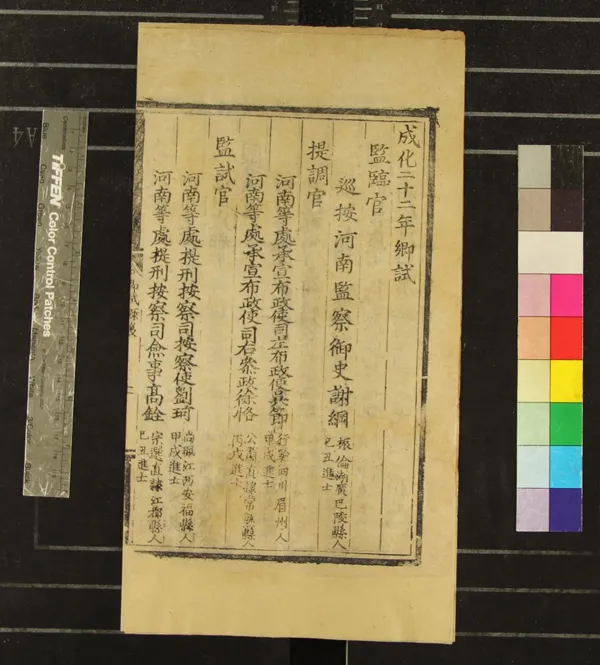 成化二十二年鄉試
監臨官
巡按河南監察御史謝綱
振倫湖廣巴陵縣人
己丑進士
提調官
河南等處承宣布政使司左布政使吳節
行儉四川眉州人
甲戌進士
河南等處承宣布政使司右叅政徐恪
公肅直隸常熟縣人
丙戌進士
監試官
河南等處提刑按察司按察使劉琦
尚珮江西安福縣人
甲戌進士
河南等處提刑按察司僉事髙銓
宗選直隷江都縣人
己丑進士
TIFFEN Color Control Patches
A4